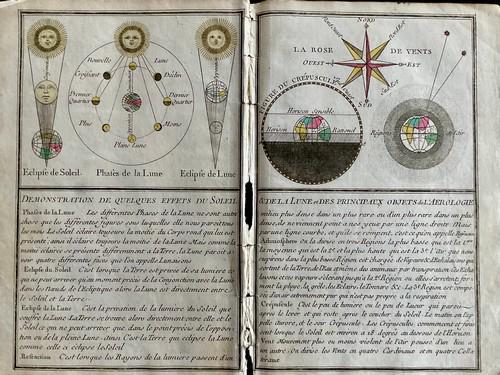 Nouvelle Lune
Croissant Déclin
Premier Quartier Dernier Quartier
Plus Moins
Plaine Lune
Eclipse de Soleil Phases de la Lune Eclipse de Lune
DEMONSTRATION DE QUELQUES EFFETS DU SOLEIL
Phases de la Lune Les différentes Phases de la Lune ne sont autre
chose que les différentes figures sous lesquelles elle nous paroit
les. Le Soleil éclaire toujours la moitié du Corps rond qui lui est
présenté; ainsi il éclaire toujours la moitié de la Lune. Mais comme la
moitié éclairée se présente différemment à la Terre, la Lune paroit a-
voir quatre différentes faces que l'on appelle Lunaisons
Eclipse du Soleil C'est lorsque la Terre est privée de sa lumière ce
qui ne peut arriver qu'au moment précis de la Conjonction avec la Lune
dans les Nœuds de l'Ecliptique alors la Lune est directement entre
le Soleil et la Terre.
Eclipse de la Lune C'est la privation de la lumière du Soleil que
souffre la Lune. La Terre se trouve alors directement entre elle et le
Soleil ce qui ne peut arriver que dans le point précis de l'opposi-
tion ou de la pleine Lune. Ainsi C'est la Terre qui éclipse la Lune
comme celle ci éclipse le Soleil
Réfraction C'est lorsque les Rayons de la lumière passent d'un
NORD
Nord Ouest Nord Est
LA ROSE DE VENTS
OUEST EST
Sud Est
SUD
FIGURE DU CRÉPUSCULE
Horison Sensible
Horison Rationel
Régions de l'Air
& DE LA LUNE ET DES PRINCIPAUX OBJETS de L'AEROLOGIE
milieu plus dense dans un plus rare ou d'un plus rare dans un plus
dense, ils ne viennent point à nos yeux par une ligne droite. Mais
par une ligne courbe, et qu'elle se rompt, c'est ce qu'on appelle Réfraction
Athmosphère On la divise en trois Régions la plus basse qui est la 1ere
la moyenne qui est la 2e et la plus haute qui est la 3e. l'air que nous
respirons dans la plus basse Région est chargée de Vapeurs & d'exhalaisons
sortent de la Terre de l'Eau
jusqu'à la 2e Région où elles s'arrêtent, for-
ment la pluye, la grêle, les Eclairs, le Tonnere &c. La 3e Région est compo-
sée d'un air extrêmement pur qui n'est pas propre à la respiration
Crépuscule C'est le peu de lumière ou le peu de lueur qui paroit
après le lever et qui reste après le coucher du Soleil. Le matin on l'ap-
pelle Aurore, et le soir Crépuscule. Les Crépuscules commencent et finis-
sent lorsque le Soleil est environ à 18 degrés au dessous de l'Horison.
Vents Mouvement plus ou moins violent de l'air poussé d'un lieu à
un autre. On divise les Vents en quatre Cardinaux et en quatre Colla-
téraux